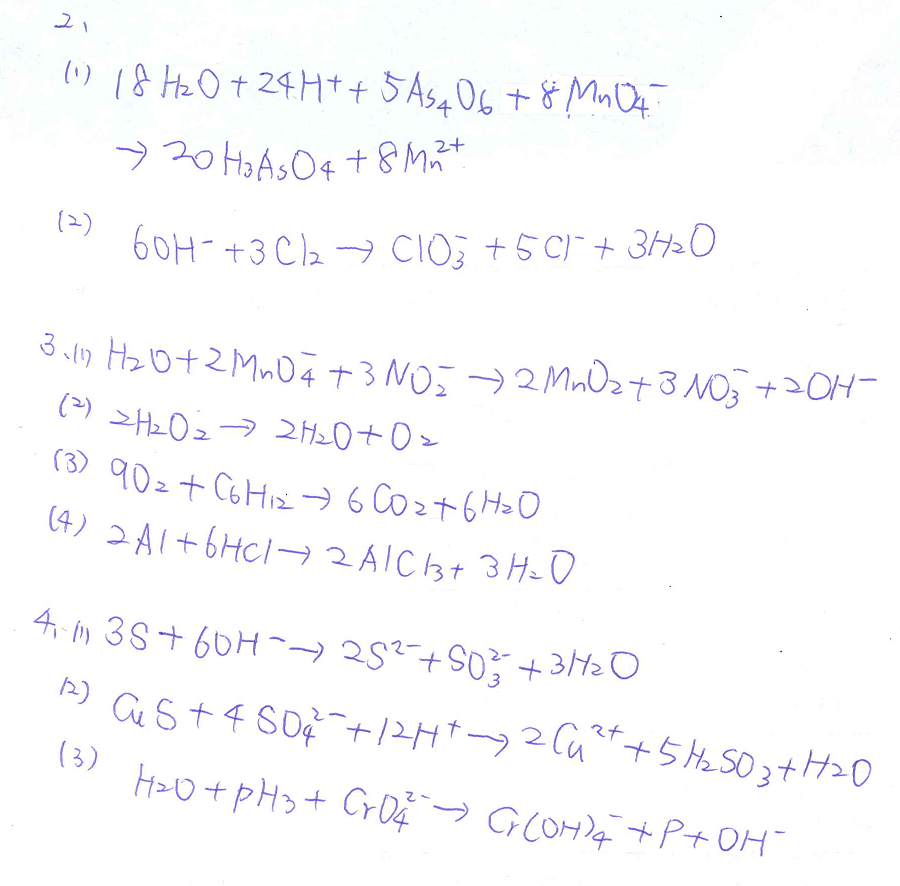 2、
(1) 18 H₂O + 24H⁺ + 5As₄O₆ + 8MnO₄⁻
→ 20H₃AsO₄ + 8Mn²⁺
(2) 6OH⁻ + 3Cl₂ → ClO₃⁻ + 5Cl⁻ + 3H₂O
3、(1) H₂O + 2MnO₄⁻ + 3NO₂⁻ → 2MnO₂ + 3NO₃⁻ + 2OH⁻
(2) 2H₂O₂ → 2H₂O + O₂
(3) 9O₂ + C₆H₁₂ → 6CO₂ + 6H₂O
(4) 2Al + 6HCl → 2AlCl₃ + 3H₂O
4、(1) 3S + 6OH⁻ → 2S²⁻ + SO₃²⁻ + 3H₂O
(2) CuS + 4SO₄²⁻ + 12H⁺ → 2Cu²⁺ + 5H₂SO₃ + H₂O
(3) H₂O + PH₃ + CrO₄²⁻ → Cr(OH)₄⁻ + P + OH⁻